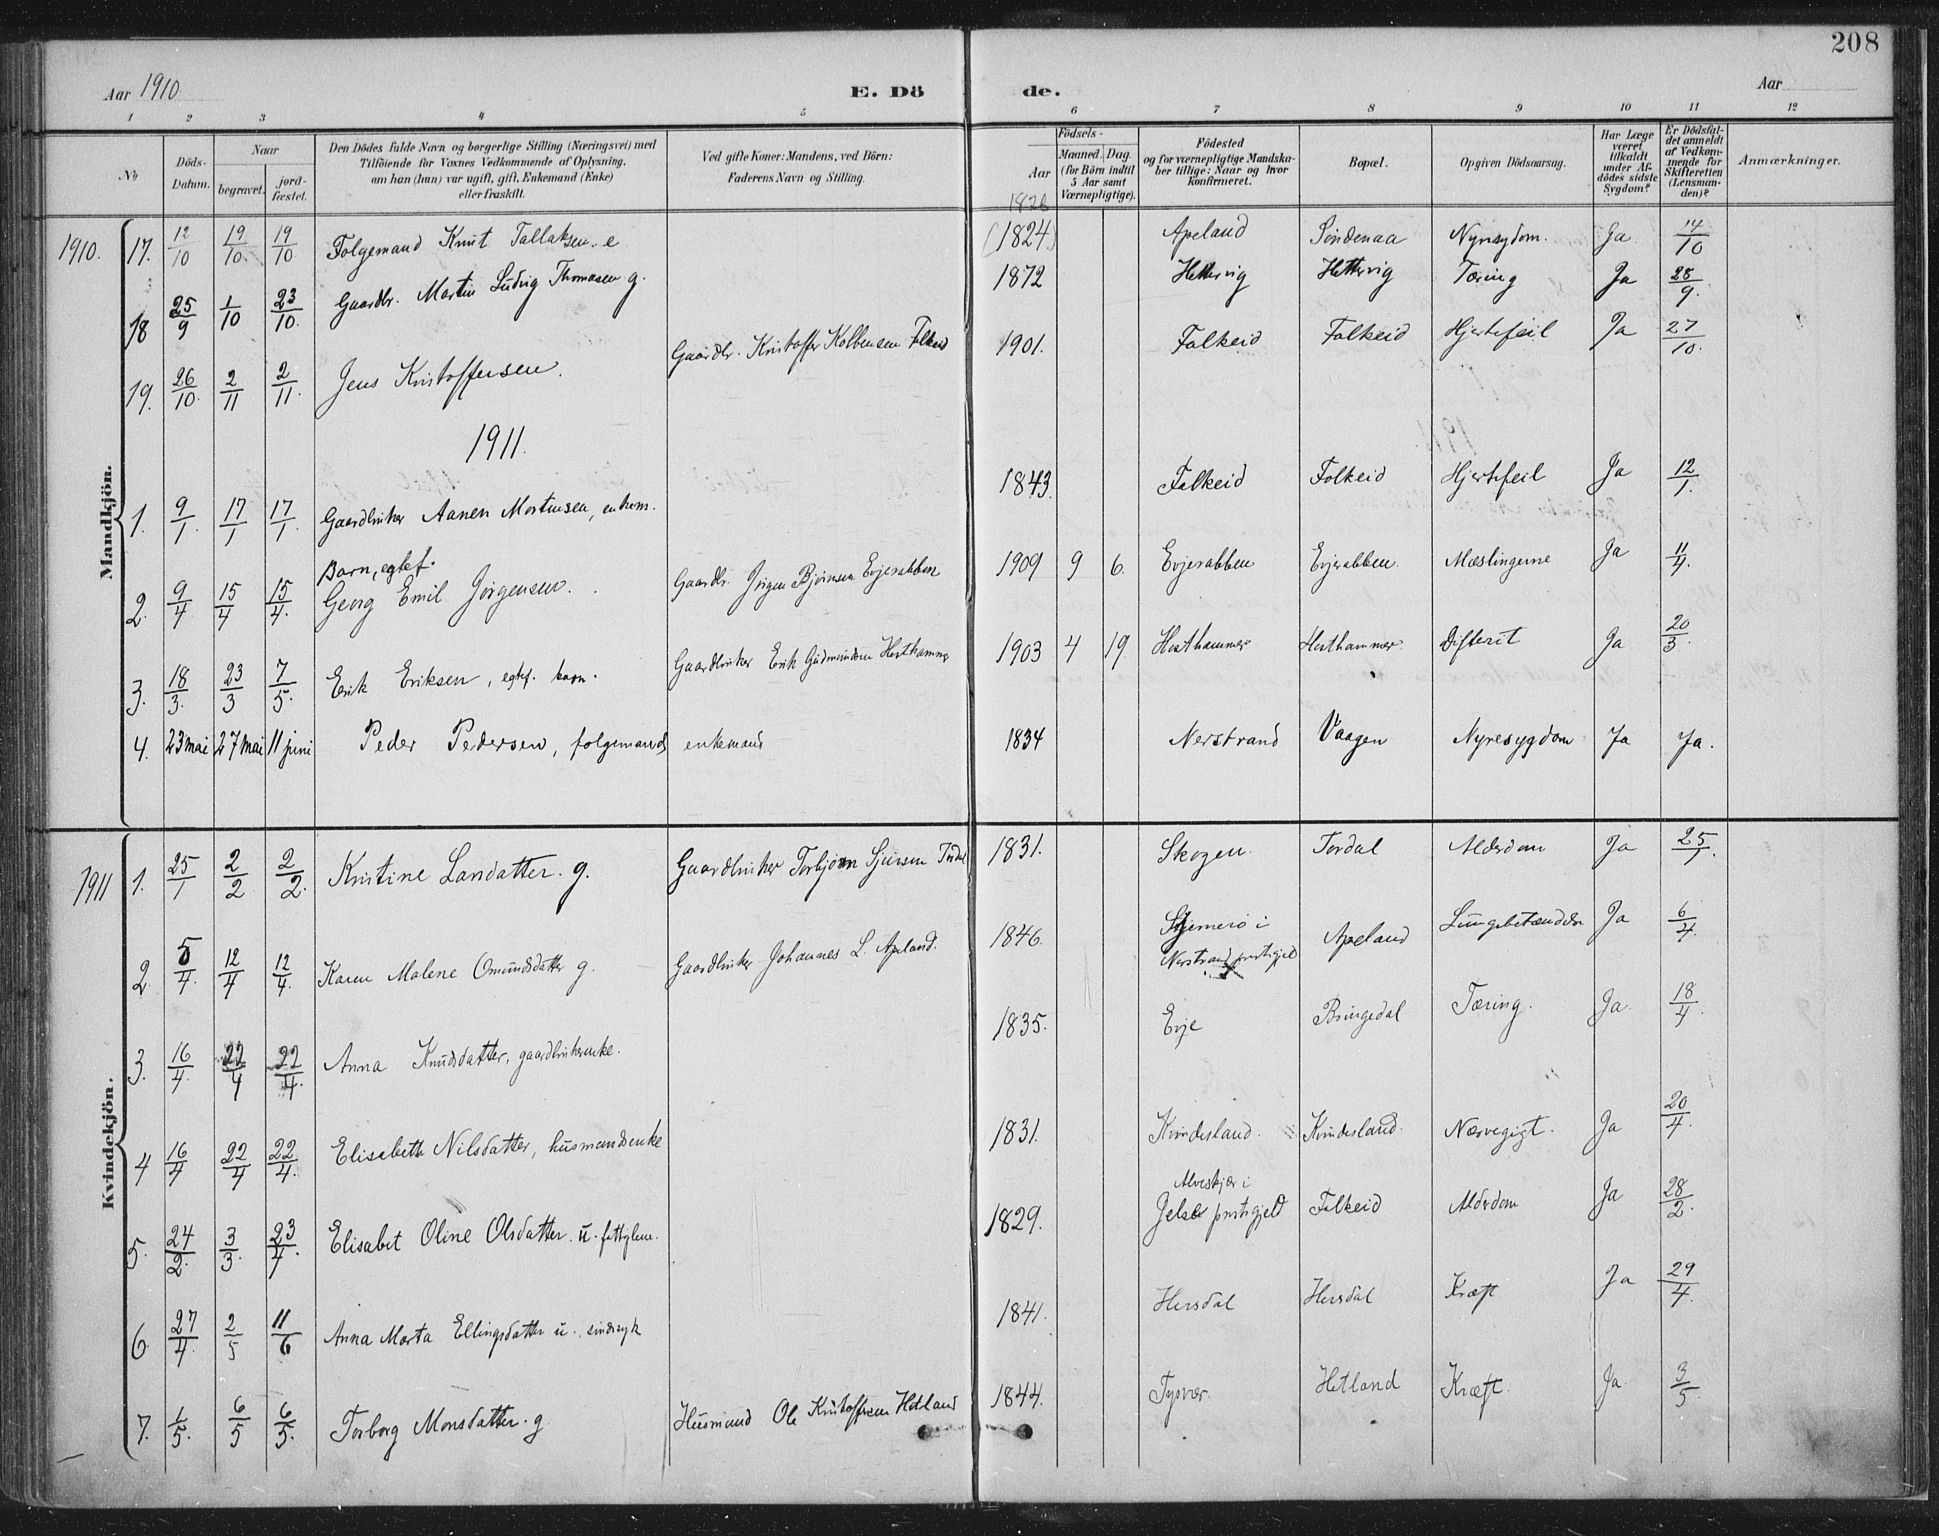 208
Aar 1910
E. Dö de.
Aar
1 2 3 4 5 6 7 8 9 10 11 12
No
Döds-Datum.
Naar
begravet.
jord-fæstet.
Den Dödes fulde Navn og borgerlige Stilling (Næringsvei) med
Tilföiende for Voxnes Vedkommende af Oplysning,
om han (hun) var ugift, gift, Enkemand (Enke)
eller fraskilt.
Ved gifte Koner: Mandens, ved Börn:
Faderens Navn og Stilling.
Födsels-
Aar
Maaned. Dag.
(for Börn indtil
5 Aar samt
Værnepligtige).
Födested
og for værnepligtige Mandska-
ber tillige: Naar og hvor
konfirmeret.
Bopæl.
Opgiven Dödsaarsag.
Har Læge
været
tilkaldt
under Af-
dödes sidste
Sygdom?
Er Dödsfal-
det anmeldt
af Vedkom-
mende for
Skifteretten
(Lensman-
den)?
Anmærkninger.
Mandkjön.
1826
1910. 17. 12/10 19/10. 19/10 Folgemand Knut Tallaksen. e (1824) Apeland Söndenaa Nyresydom. Ja 14/10
18 25/9 1/10 23/10. Gaardbr. Martin Ludvig Thomasen g. 1872 Hettervig Hettervig Tæring Ja 28/9.
19. 26/10. 2/11 2/11. Jens Kristoffersen. Gaardbr. Kristoffer Kolbensen Falkeid 1901. Falkeid Falkeid Hjertefeil Ja 27/10.
1911.
1. 9/1 17/1 17/1. Gaardbruker Aanen Mortensen, enkem. 1843. Falkeid Falkeid Hjertefeil Ja 12/1.
Barn, egtef.
2. 9/4 15/4 15/4. Georg Emil Jörgensen. Gaardbr. Jörgen Björnsen Evjerabben 1909 9 6. Evjerabben Evjerabben Mæslingerne Ja 11/4.
3. 18/3. 23/3 7/5. Erik Eriksen, egtef. barn. Gaardbruker Erik Gudmundsen Hesthammer 1903 4 19 Hesthammer Hesthammer Difterit Ja 20/3.
4. 23 mai 27 mai 11 juni Peder Pedersen, folgemand, enkemand 1834 Nerstrand Vaagen Nyresygdom Ja Ja.
Kvindekjön.
1911 1. 25/1 2/2 2/2. Kristine Larsdatter. g. Gaardbruker Torbjörn Sjursen Tordal 1831. Skogen. Tordal Alderdom Ja 25/1.
2. 5/4 12/4 12/4. Karen Malene Omundsdatter g. Gaardbruker Johannes L. Apeland. 1846. Stjernerö i
Nerstrand prestegjeld Apeland Lungebetændelse Ja 6/4.
3. 16/4. 22/4 22/4. Anna Knudsdatter, gaardbrukerenke. 1835. Evje Bringedal Tæring. Ja. 18/4
4 16/4 22/4 22/4. Elisabeth Nilsdatter, husmandsenke 1831. Kvindesland. Kvindesland. Nervegigt. Ja 20/4.
5. 24/2. 3/3. 23/4. Elisabet Oline Olsdatter. u. fattiglem. 1829. Alveskjær i
Jelse prestegjeld Falkeid Alderdom Ja 28/2.
6. 27/4. 2/5 11/6 Anna Marta Ellingsdatter u., sindssyk 1841. Hersdal Hersdal Kræft Ja 29/4.
7. 1/5. 6/5 6/5. Torborg Monsdatter. g Husmand Ole Kristoffersen Hetland 1844. Tysvær Hetland Kræft. Ja. 3/5.